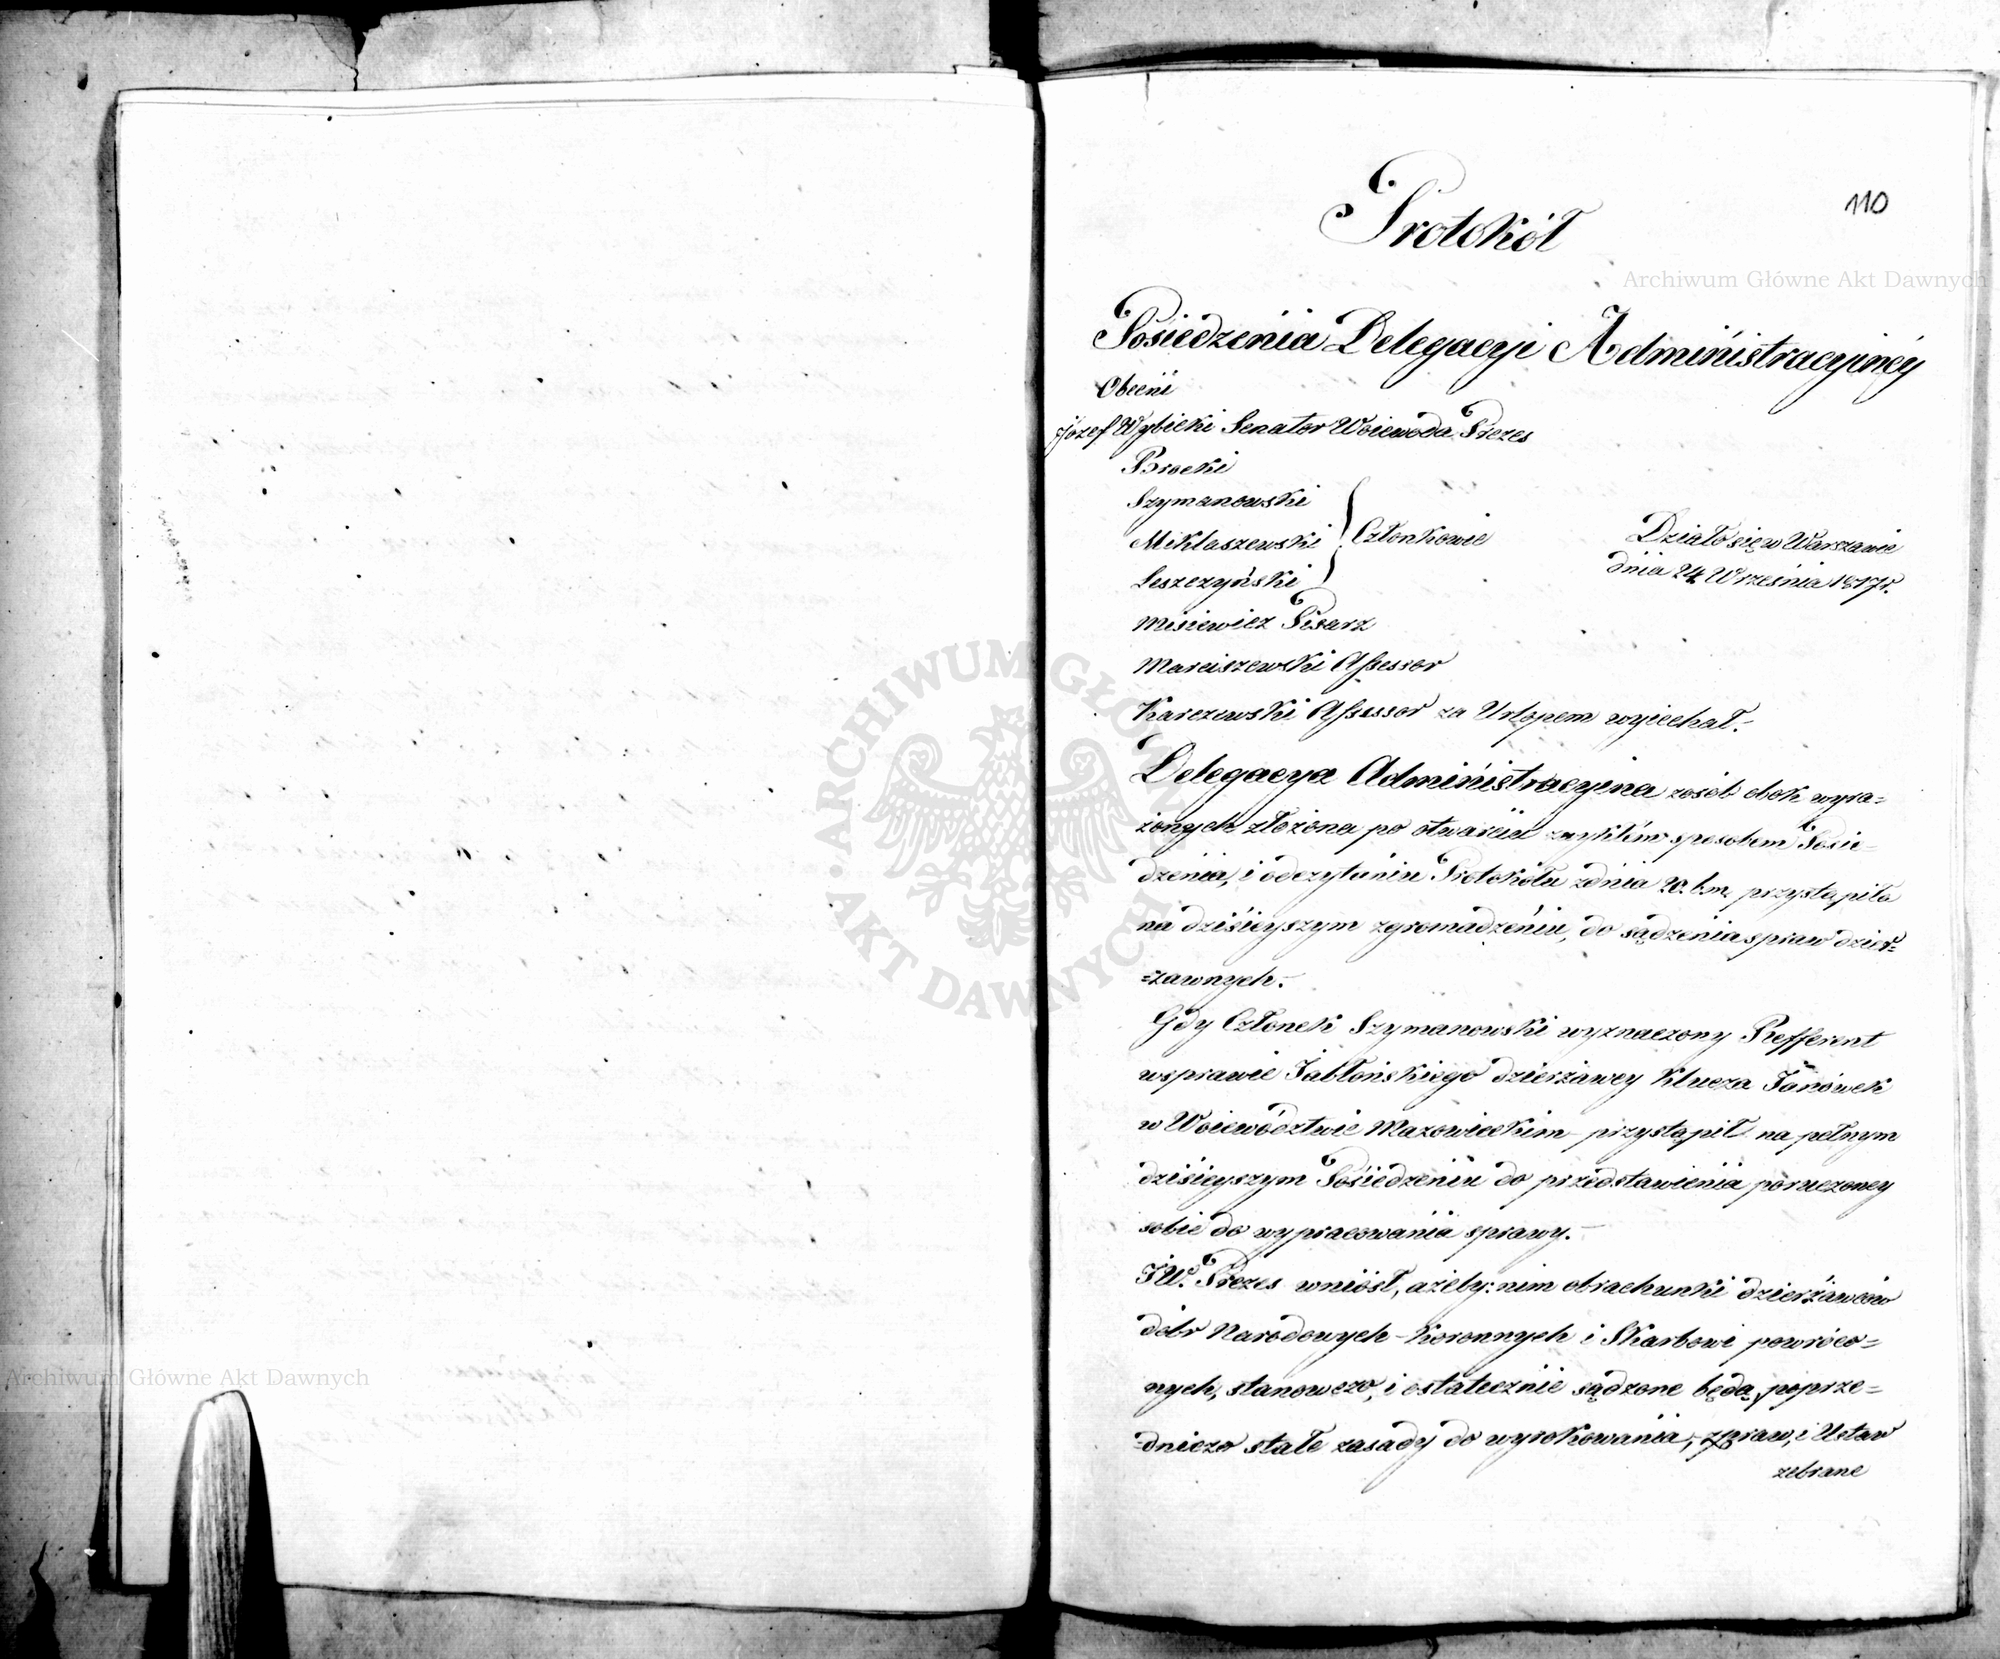 110
Protokół
Posiedzenia Delegacyi Administracyinéy
Obecni
Józef Wybicki Senator Woiewoda Prezes
Brocki
Szymanowski
Miklaszewski } Członkowie
Leszczyński
Działo się w Warszawie
dnia 24 Września 1817r.
Misiewicz Pisarz
Marciszewski Assessor
Karczewski Assessor za Urlopem wyiechał.
Delegacya Administracyina zosób obok wyra=
żonych złożona po otwarciu zwykłym sposobem Posie-
dzenia, i odczytaniu Protokołu zdnia 20. b.m. przystąpiła
na dzisieyszym zgromadzeniu, do sądzenia spraw dzier=
=żawnych.
Gdy Członek Szymanowski wyznaczony Refferent
wsprawie Jabłońskiego dzierżawcy Klucza Janówek
w Woiewództwie Mazowieckim przystąpił na pełnym
dzisieyszym Posiedzeniu do przedstawienia poruczoney
sobie do wypracowania sprawy.
JW. Prezes wniósł, ażeby: nim obrachunki dzierżawców
dóbr Narodowych-Koronnych i Skarbowi powróco=
nych, stanowczo, i ostatecznie sądzone będą, poprze=
=dniczo stałe zasady do wyrokowania, zpraw, i Ustaw
zebrane
Archiwum Główne Akt Dawnych
Archiwum Główne Akt Dawnych
ARCHIWUM GŁÓWNE AKT DAWNYCH